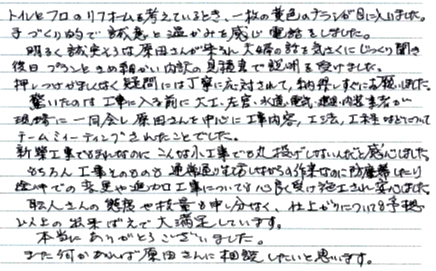 トイレとフロのリフォームを考えているとき、一枚の黄色のチラシが目に入いました。
手づくり的で誠意と温かみを感じ電話をしました。
明るく誠実そうな原田さんが来られ夫婦の話を気さくにじっくり聞き
後日プランときめ細かい内訳の見積書で説明を受けました。
押しつけがましくなく疑問には丁寧に応対されて、納得しすぐにお願いしました。
驚いたのは工事に入る前に大工・左官・水道・電気・建造・内装業者が
現場に一同会し原田さんを中心に工事内容、工法、工程などについて
チームミーティングされたことでした。
新築工事でもあれなのにこんな小工事でも丸投げしないんだと感心しました。
もちろん工事そのものも通常通り生活しながらの作業なのに防塵幕したり
途中での変更や追加工事についても心良く受け施工され安心しました。
職人さんの態度や技量も申し分なく、仕上がりについても予想
以上の出来ばえで大満足しています。
本当にありがとうございました。
また何かあれば原田さんに相談したいと思います。